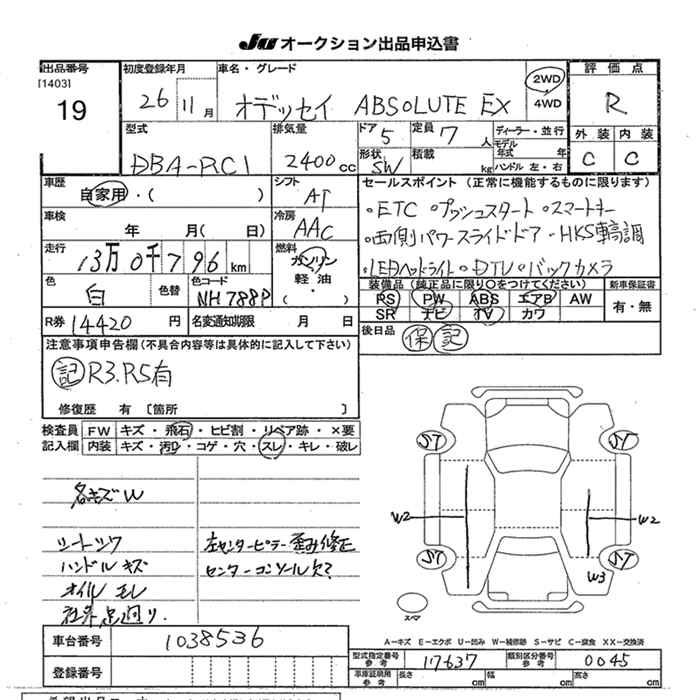 JU オークション出品申込書
出品番号 初度登録年月 車名・グレード 評価点
[1403] 19 26 11月 オデッセイ ABSOLUTE EX 2WD 4WD R
型式 排気量 ドア 5 定員 7人 ディーラー・並行 外装 内装
DBA-RC1 2400cc 形状 SW 積載 kg モデル年式 年 ハンドル 左・右 C C
車歴 自家用・( ) シフト AT セールスポイント (正常に機能するものに限ります)
車検 年 月( 日) 冷房 AAC 。ETC 。プッシュスタート 。スマートキー
走行 13万0千796km 燃料 ガソリン 軽油・ ・両側パワースライドドア・HKS車高調
・LEDヘッドライト 。DTV 。バックカメラ
色 白 色替 色コード NH788P 装備品 (純正品に限り○をつけてください) 新車保証書
PS PW ABS エアB AW 有・無
SR ナビ TV カワ
R券 14420円 名変通知期限 月 日 後日品 保 記
注意事項申告欄(不具合内容等は具体的に記入して下さい)
記 R3.R5有
修復歴 有 [箇所 ]
検査員 FW キズ・飛石・ヒビ割・リペア跡・×要
記入欄 内装 キズ・汚れ・コゲ・穴・スレ・キレ・破レ
各キズW
シートシワ 左センターピラー歪み修正
ハンドルキズ センターコンソール欠?
オイルモレ
社外足廻り.
ST ST
W2 W2
ST ST
W3
スペア
A-キズ E-エクボ U-凹み W-補修跡 S-サビ C-腐食 XX-交換済
車台番号 1038536
型式指定番号 参考 17637 類別区分番号 参考 0045
登録番号 車庫証明用 参考 長さ cm 幅 cm 高さ cm